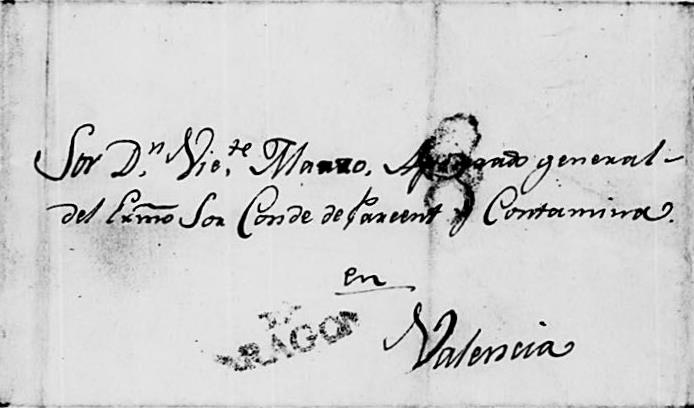 Sor Dn. Victe. Manzo, Apoderado general
del Exmo Sor Conde de Parcent y Contamina.
en
Valencia
ARAGON